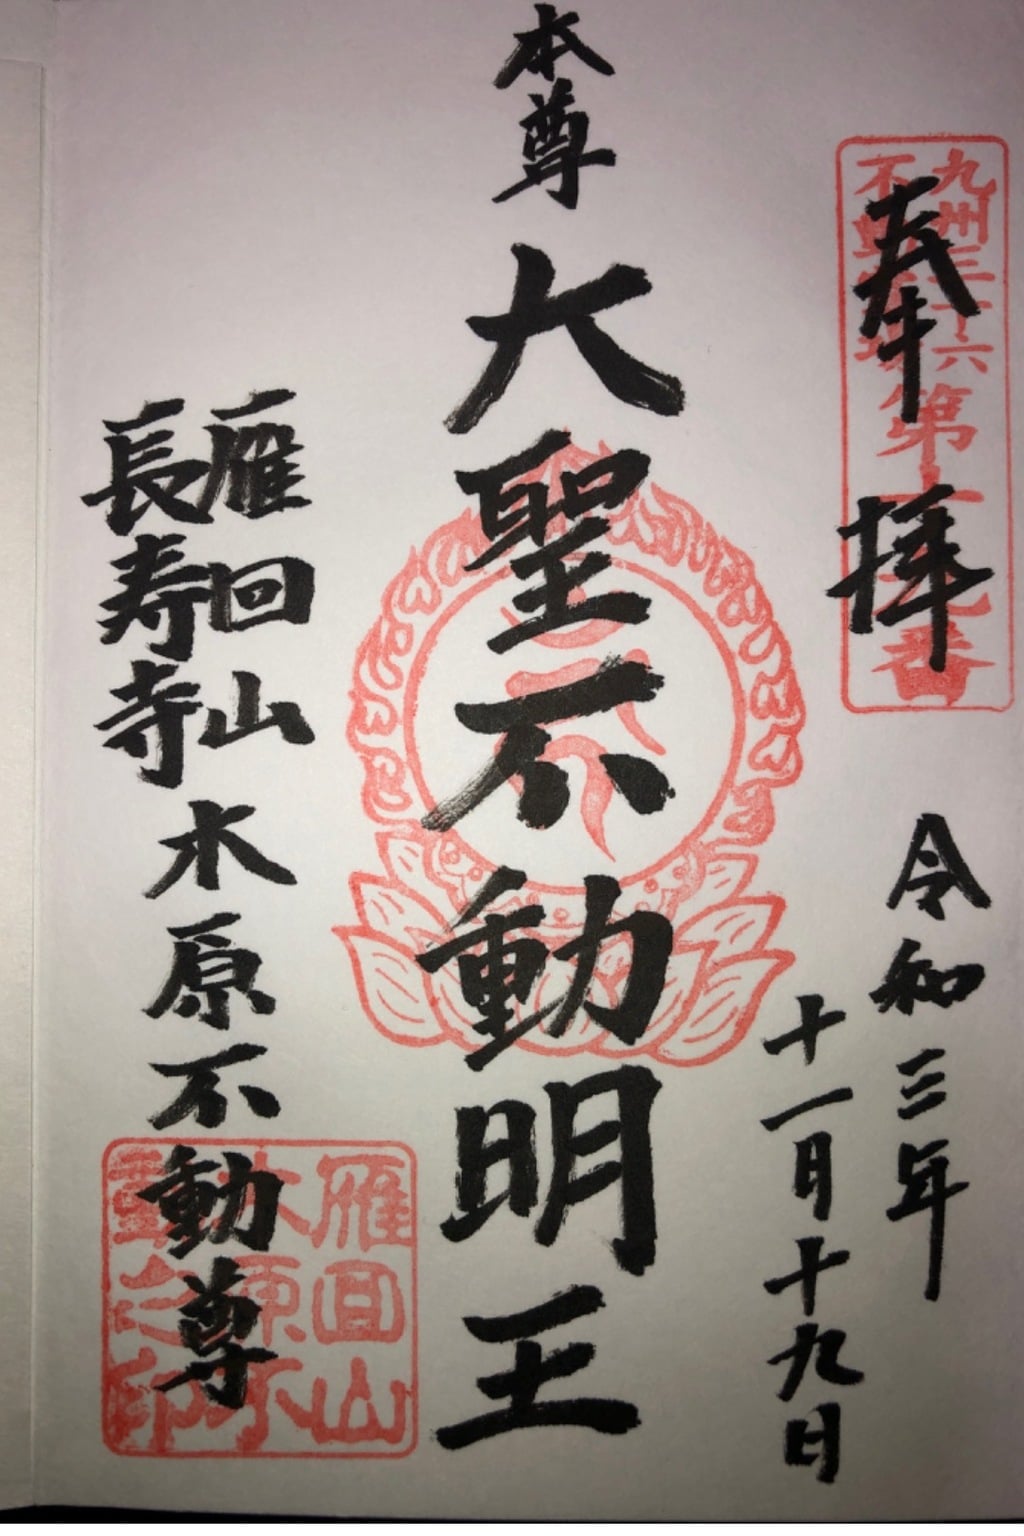 奉拝
九州三十六
不動霊場
第十九番
令和三年
十一月十九日
本尊 大聖不動明王
雁回山
長寿寺
木原不動尊
雁回山
木原不
動之印